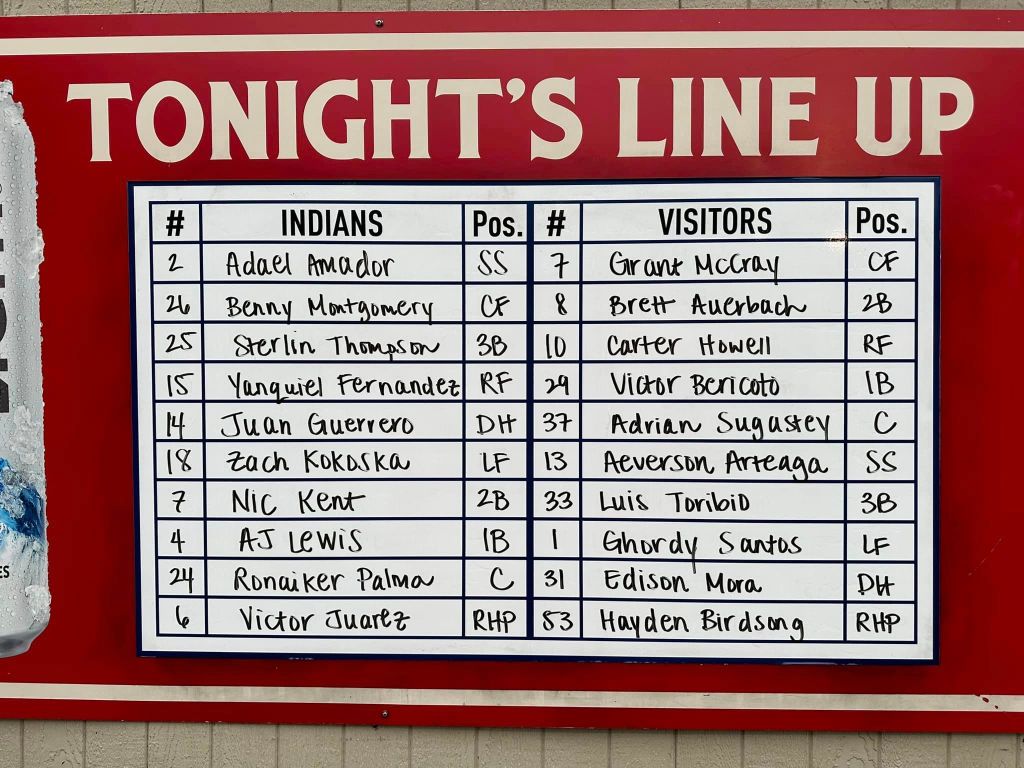 TONIGHT'S LINE UP
# INDIANS Pos. # VISITORS Pos.
2 Adael Amador SS 7 Grant McCray CF
26 Benny Montgomery CF 8 Brett Auerbach 2B
25 Sterlin Thompson 3B 10 Carter Howell RF
15 Yanquiel Fernandez RF 29 Victor Bericoto 1B
14 Juan Guerrero DH 37 Adrian Sugastey C
18 Zach Kokoska LF 13 Aeverson Arteaga SS
7 Nic Kent 2B 33 Luis Toribio 3B
4 AJ Lewis 1B 1 Ghordy Santos LF
24 Ronaiker Palma C 31 Edison Mora DH
6 Victor Juarez RHP 53 Hayden Birdsong RHP